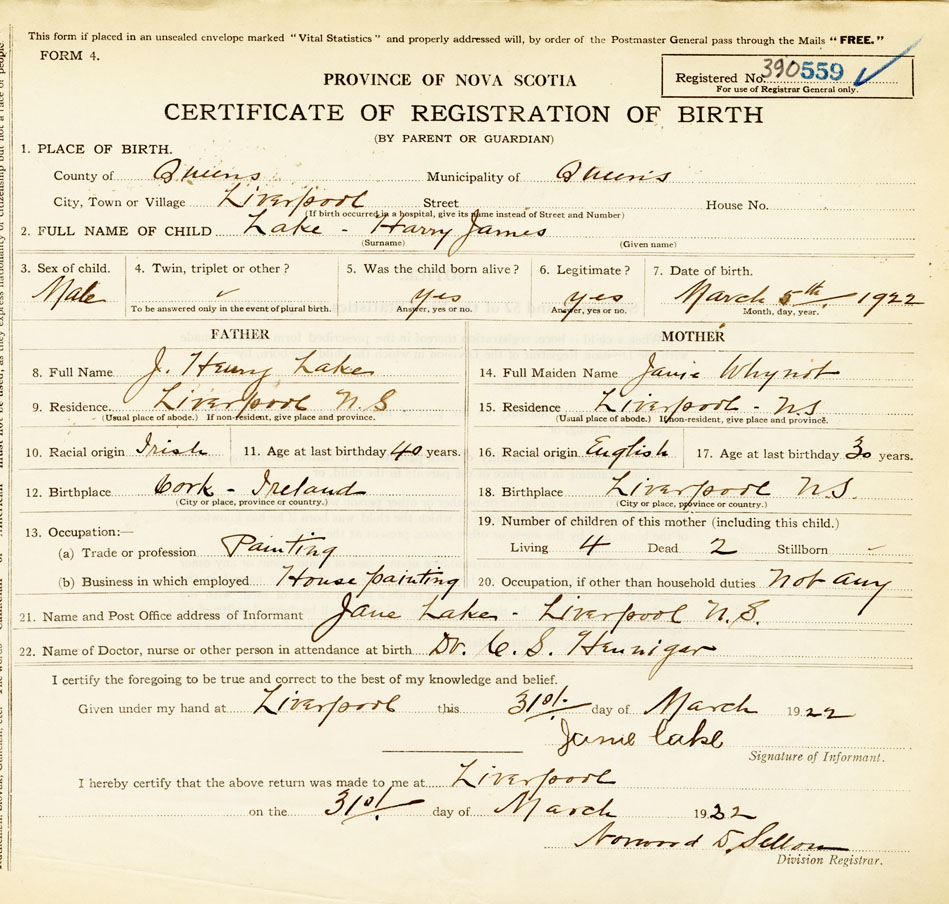 This form if placed in an unsealed envelope marked "Vital Statistics" and properly addressed will, by order of the Postmaster General pass through the Mails "FREE."
FORM 4.
Registered No. 390559
For use of Registrar General only.
PROVINCE OF NOVA SCOTIA
CERTIFICATE OF REGISTRATION OF BIRTH
(BY PARENT OR GUARDIAN)
1. PLACE OF BIRTH.
County of Queens Municipality of Queen's
City, Town or Village Liverpool Street House No.
(If birth occurred in a hospital, give its name instead of Street and Number)
2. FULL NAME OF CHILD Lake - Harry James
(Surname) (Given name)
3. Sex of child. 4. Twin, triplet or other? 5. Was the child born alive? 6. Legitimate? 7. Date of birth.
Male yes yes March 5th 1922
To be answered only in the event of plural birth. Answer, yes or no. Answer, yes or no. Month, day, year.
FATHER MOTHER
8. Full Name J. Henry Lake 14. Full Maiden Name Janie Whynot
9. Residence Liverpool N.S 15. Residence Liverpool - N.S
(Usual place of abode.) If non-resident, give place and province. (Usual place of abode.) If non-resident, give place and province.
10. Racial origin Irish 11. Age at last birthday 40 years. 16. Racial origin English 17. Age at last birthday 30 years.
12. Birthplace Cork - Ireland 18. Birthplace Liverpool N.S.
(City or place, province or country.) (City or place, province or country.)
13. Occupation:— 19. Number of children of this mother (including this child.)
(a) Trade or profession Painting Living 4 Dead 2 Stillborn -
(b) Business in which employed House painting 20. Occupation, if other than household duties Not any
21. Name and Post Office address of Informant Jane Lake - Liverpool N.S.
22. Name of Doctor, nurse or other person in attendance at birth Dr. C. S. Hennigar
I certify the foregoing to be true and correct to the best of my knowledge and belief.
Given under my hand at Liverpool this 31st day of March 1922
Janie Lake
Signature of Informant.
I hereby certify that the above return was made to me at Liverpool
on the 31st day of March 1922
Norwood
Division Registrar.